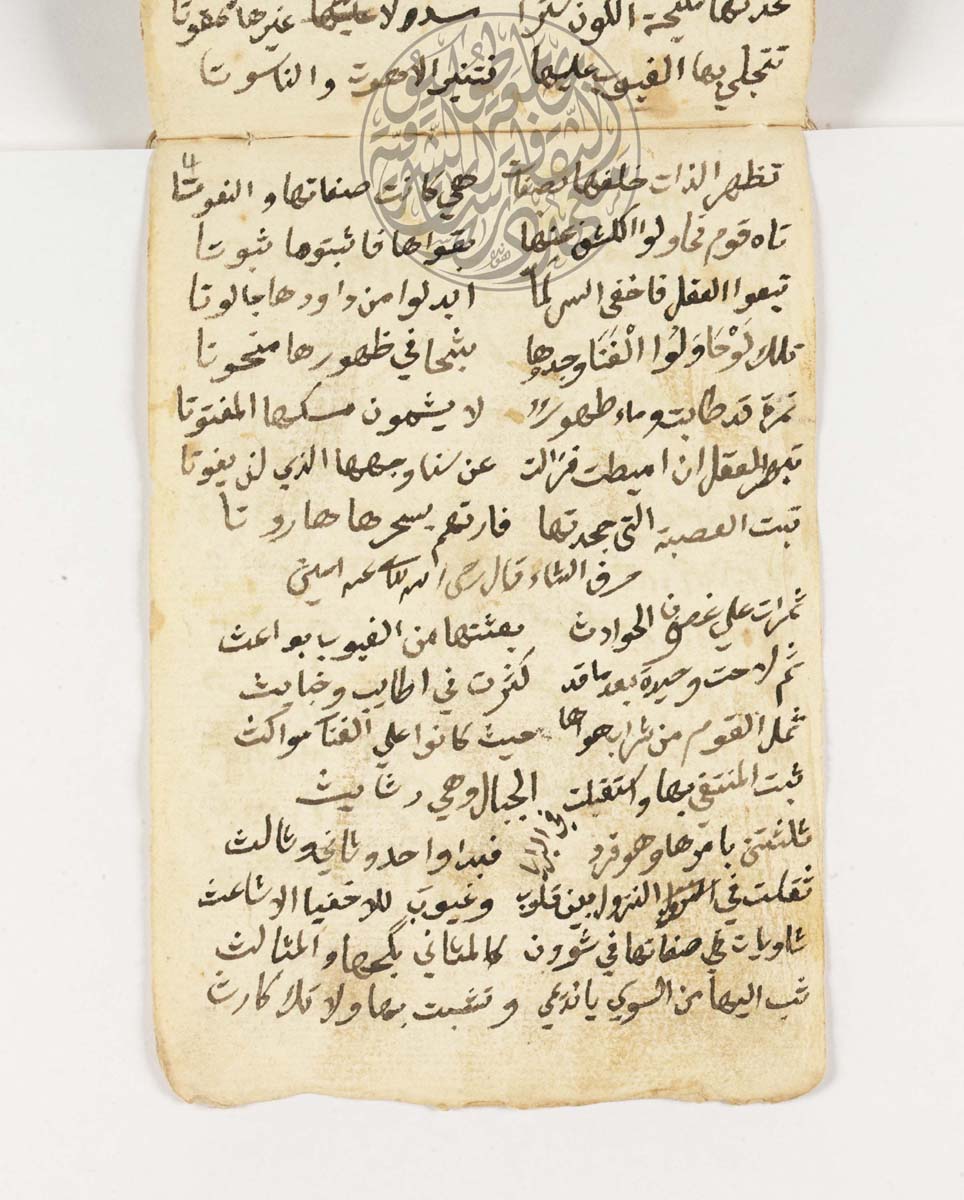 مليحة الكون سدولا عليها غيرها ممقوتا
تتجلي بها الغيوب عليها فتنير الاهوت والناسوتا
تظهر الذات خلفها بصفات هي كانت صفاتها والنعوتا
تاه قوم تحاولوا الكشف عنها بقواها فاثبتوها ثبوتا
تبعوا العقل فاختفى السر لما ابدلوا من داودها جالوتا
تلك لَوْ حَاوَلُوا الْفَنَا وجدوها في ظهورها منحوتا
ثمرة قد طابت وماء طهور لا يشمون مسكها المفتوتا
العقل ان اميطت فزالت عن سنا وجهها الذي لن يفوتا
تبت العصبة التي جحدتها فارتهم بسحرها هاروتا
حرف الثاء قال رضى الله تعالى عنه امين
ثمرات علي غصون الحوادث بعثتها من الغيوب بواعث
ثم لاحت وحيدة بعد ما قد كثرت في اطايب وخبايث
ثمل القوم من شراب هواها حيث كانوا علي الفنا مواكث
ثبت المنتقي بها واستقيلت الجبال وهي رثايث
ثلثتني بامرها وهو فرد في البرايا فبدا واحد وثاني وثالث
ثقلت في النزول بين قلوب وغيوب للاخفيا الاشاعث
ثاويات في صفاتها في شوون كالمثاني بكمها والمثالث
ثب اليها من السوي يا نديمي وتثبت بها ولا تك كارث